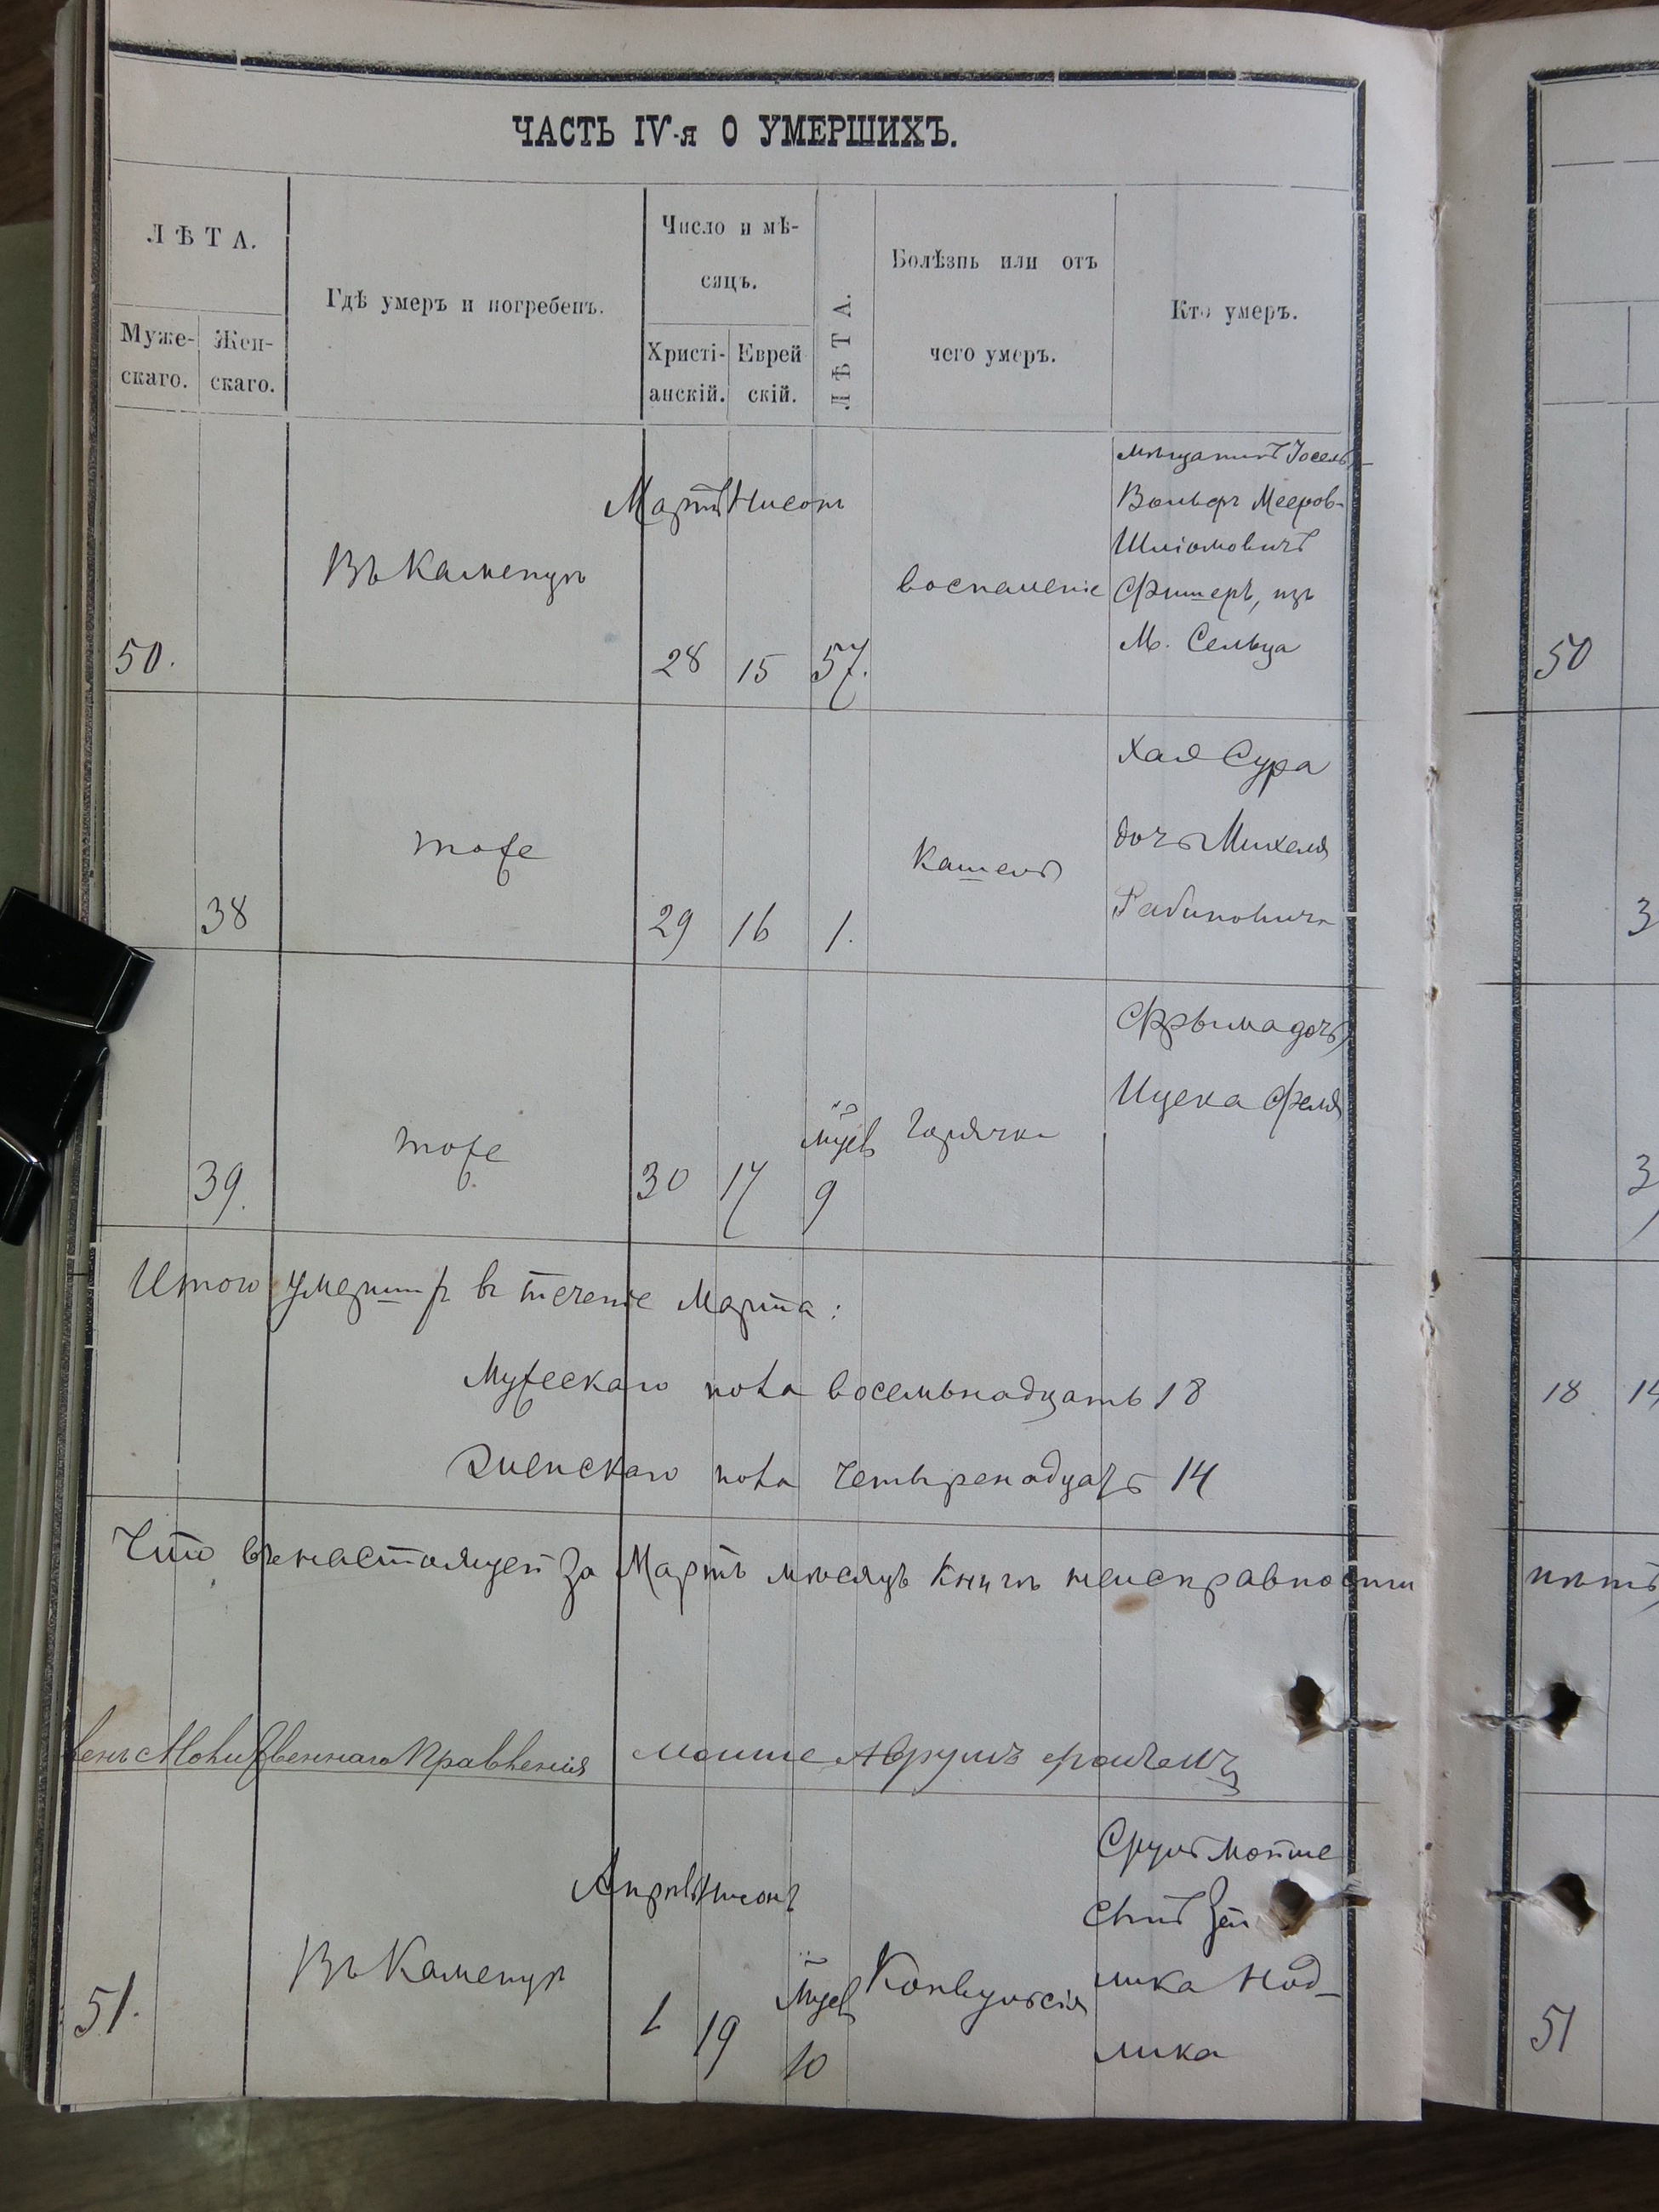 ЧАСТЬ IV-я О УМЕРШИХЪ.
ЛѢТА.
Муже-
скаго.
Жен-
скаго.
Гдѣ умеръ и погребенъ.
Число и мѣ-
сяцъ.
Христі-
анскій.
Еврей
скій.
ЛѢТА.
Болѣзнь или отъ
чего умеръ.
Кто умеръ.
50.
Въ Каменцѣ
Мартъ
28
Нисонъ
15
57.
воспаленіе
мѣщанинъ Іосель-
Вольфъ Мееров-
Шліомовичъ
Фишеръ, изъ
М. Сельца
50
38
тоже
29
16
1.
Кашель
Хая Сура
дочь Михеля
Рабиновича
3
39.
тоже
30
17
мцев
9
Горячка
Фрыма дочь
Ицека Феля
3
Итого умершихъ въ теченіе Марта:
Мужескаго пола восемьнадцать 18
Женскаго пола четыренадцать 14
18 14
Что въ настоящей за Мартъ мѣсяцъ книгѣ неисправности нѣтъ
Правленія Мошие Аврумъ
51.
Въ Каменцѣ
Апрѣль
1
Нисонъ
19
Мцев
10
Конвульсія
Сруль Мойше
сынъ
лика Под-
лика
51